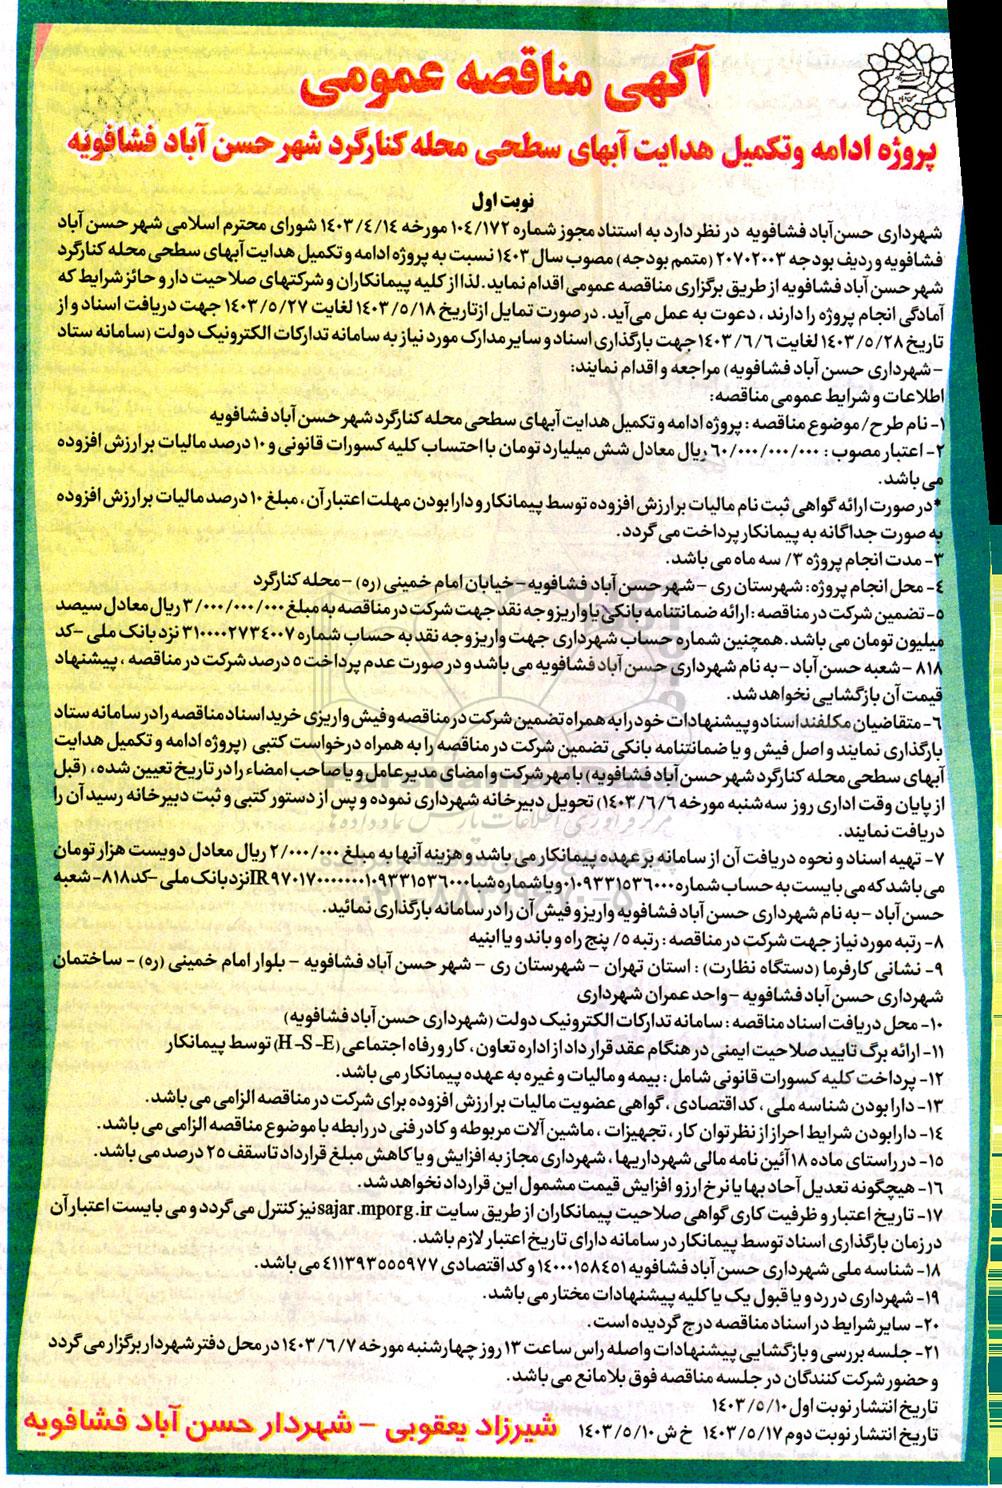 آگهی مناقصه عمومی
پروژه ادامه وتکمیل هدایت آبهای سطحی محله کنارگرد شهر حسن آباد فشافویه
نوبت اول
شهرداری حسن‌آباد فشافویه در نظر دارد به استناد مجوز شماره ۱۰۴/۱۷۲ مورخه ۱۴۰۳/۴/۱۴ شورای محترم اسلامی شهر حسن آباد
فشافویه و ردیف بودجه ۲۰۷۰۲۰۰۳ (متمم بودجه) مصوب سال ۱۴۰۳ نسبت به پروژه ادامه و تکمیل هدایت آبهای سطحی محله کنارگرد
شهر حسن آباد فشافویه از طریق برگزاری مناقصه عمومی اقدام نماید. لذا از کلیه پیمانکاران و شرکتهای صلاحیت دار و حائز شرایط که
آمادگی انجام پروژه را دارند ، دعوت به عمل می‌آید. در صورت تمایل ازتاریخ ۱۴۰۳/۵/۱۸ لغایت ۱۴۰۳/۵/۲۷ جهت دریافت اسناد و از
تاریخ ۱۴۰۳/۵/۲۸ لغایت ۱۴۰۳/۶/۶ جهت بارگذاری اسناد و سایر مدارک مورد نیاز به سامانه تدارکات الکترونیک دولت (سامانه ستاد
-شهرداری حسن آباد فشافویه) مراجعه و اقدام نمایند:
اطلاعات و شرایط عمومی مناقصه:
۱- نام طرح/ موضوع مناقصه : پروژه ادامه و تکمیل هدایت آبهای سطحی محله کنارگرد شهر حسن آباد فشافویه
۲- اعتبار مصوب : ۶۰/۰۰۰/۰۰۰/۰۰۰ ریال معادل شش میلیارد تومان با احتساب کلیه کسورات قانونی و ۱۰ درصد مالیات بر ارزش افزوده
می باشد.
*در صورت ارائه گواهی ثبت نام مالیات بر ارزش افزوده توسط پیمانکار و دارا بودن مهلت اعتبار آن ، مبلغ ۱۰ درصد مالیات بر ارزش افزوده
به صورت جداگانه به پیمانکار پرداخت می گردد.
۳- مدت انجام پروژه ۳/ سه ماه می باشد.
۴- محل انجام پروژه: شهرستان ری - شهر حسن آباد فشافویه - خیابان امام خمینی (ره) - محله کنارگرد
۵- تضمین شرکت در مناقصه : ارائه ضمانتنامه بانکی یا واریز وجه نقد جهت شرکت در مناقصه به مبلغ ۳/۰۰۰/۰۰۰/۰۰۰ ریال معادل سیصد
میلیون تومان می باشد. همچنین شماره حساب شهرداری جهت واریز وجه نقد به حساب شماره ۳۱۰۰۰۰۲۷۳۴۰۰۷ نزد بانک ملی -کد
۸۱۸ - شعبه حسن آباد - به نام شهرداری حسن آباد فشافویه می باشد و در صورت عدم پرداخت ۵ درصد شرکت در مناقصه ، پیشنهاد
قیمت آن بازگشایی نخواهد شد.
۶- متقاضیان مکلفند اسناد و پیشنهادات خود را به همراه تضمین شرکت در مناقصه و فیش واریزی خرید اسناد مناقصه را در سامانه ستاد
بارگذاری نمایند و اصل فیش و یا ضمانتنامه بانکی تضمین شرکت در مناقصه را به همراه درخواست کتبی (پروژه ادامه و تکمیل هدایت
آبهای سطحی محله کنارگرد شهر حسن آباد فشافویه) با مهر شرکت و امضای مدیرعامل و یا صاحب امضاء را در تاریخ تعیین شده ، (قبل
از پایان وقت اداری روز سه شنبه مورخه ۱۴۰۳/۶/۶) تحویل دبیرخانه شهرداری نموده و پس از دستور کتبی و ثبت دبیرخانه رسید آن را
دریافت نمایند.
۷- تهیه اسناد و نحوه دریافت آن از سامانه بر عهده پیمانکار می باشد و هزینه آنها به مبلغ ۲/۰۰۰/۰۰۰ ریال معادل دویست هزار تومان
می باشد که می بایست به حساب شماره ۰۱۰۹۳۳۱۵۳۶۰۰۰ و یا شماره شبا IR۹۷۰۱۷۰۰۰۰۰۰۰۱۰۹۳۳۱۵۳۶۰۰۰ نزد بانک ملی -کد ۸۱۸- شعبه
حسن آباد - به نام شهرداری حسن آباد فشافویه واریز و فیش آن را در سامانه بارگذاری نمائید.
۸- رتبه مورد نیاز جهت شرکت در مناقصه : رتبه ۵/ پنج راه و باند و یا ابنیه
۹- نشانی کارفرما (دستگاه نظارت) : استان تهران - شهرستان ری - شهر حسن آباد فشافویه - بلوار امام خمینی (ره) - ساختمان
شهرداری حسن آباد فشافویه -واحد عمران شهرداری
۱۰- محل دریافت اسناد مناقصه : سامانه تدارکات الکترونیک دولت (شهرداری حسن آباد فشافویه)
۱۱- ارائه برگ تایید صلاحیت ایمنی در هنگام عقد قرار داد از اداره تعاون ، کار و رفاه اجتماعی (H-S-E) توسط پیمانکار
۱۲- پرداخت کلیه کسورات قانونی شامل : بیمه و مالیات و غیره به عهده پیمانکار می باشد.
۱۳- دارا بودن شناسه ملی ، کد اقتصادی ، گواهی عضویت مالیات بر ارزش افزوده برای شرکت در مناقصه الزامی می باشد.
۱۴- دارابودن شرایط احراز از نظر توان کار ، تجهیزات ، ماشین آلات مربوطه و کادر فنی در رابطه با موضوع مناقصه الزامی می باشد.
۱۵- در راستای ماده ۱۸ آئین نامه مالی شهرداریها ، شهرداری مجاز به افزایش و یا کاهش مبلغ قرارداد تا سقف ۲۵ درصد می باشد.
۱۶- هیچگونه تعدیل آحاد بها یا نرخ ارز و افزایش قیمت مشمول این قرارداد نخواهد شد.
۱۷- تاریخ اعتبار و ظرفیت کاری گواهی صلاحیت پیمانکاران از طریق سایت sajar.mporg.ir نیز کنترل می گردد و می بایست اعتبار آن
در زمان بارگذاری اسناد توسط پیمانکار در سامانه دارای تاریخ اعتبار لازم باشد.
۱۸- شناسه ملی شهرداری حسن آباد فشافویه ۱۴۰۰۰۱۵۸۴۵۱ و کد اقتصادی ۴۱۱۳۹۳۵۵۵۹۷۷ می باشد.
۱۹- شهرداری در رد و یا قبول یک یا کلیه پیشنهادات مختار می باشد.
۲۰- سایر شرایط در اسناد مناقصه درج گردیده است.
۲۱- جلسه بررسی و بازگشایی پیشنهادات واصله راس ساعت ۱۳ روز چهارشنبه مورخه ۱۴۰۳/۶/۷ در محل دفتر شهردار برگزار می گردد
و حضور شرکت کنندگان در جلسه مناقصه فوق بلامانع می باشد.
تاریخ انتشار نوبت اول ۱۴۰۳/۵/۱۰
تاریخ انتشار نوبت دوم ۱۴۰۳/۵/۱۷ خ ش ۱۴۰۳/۵/۱۰
شیرزاد یعقوبی - شهردار حسن آباد فشافویه